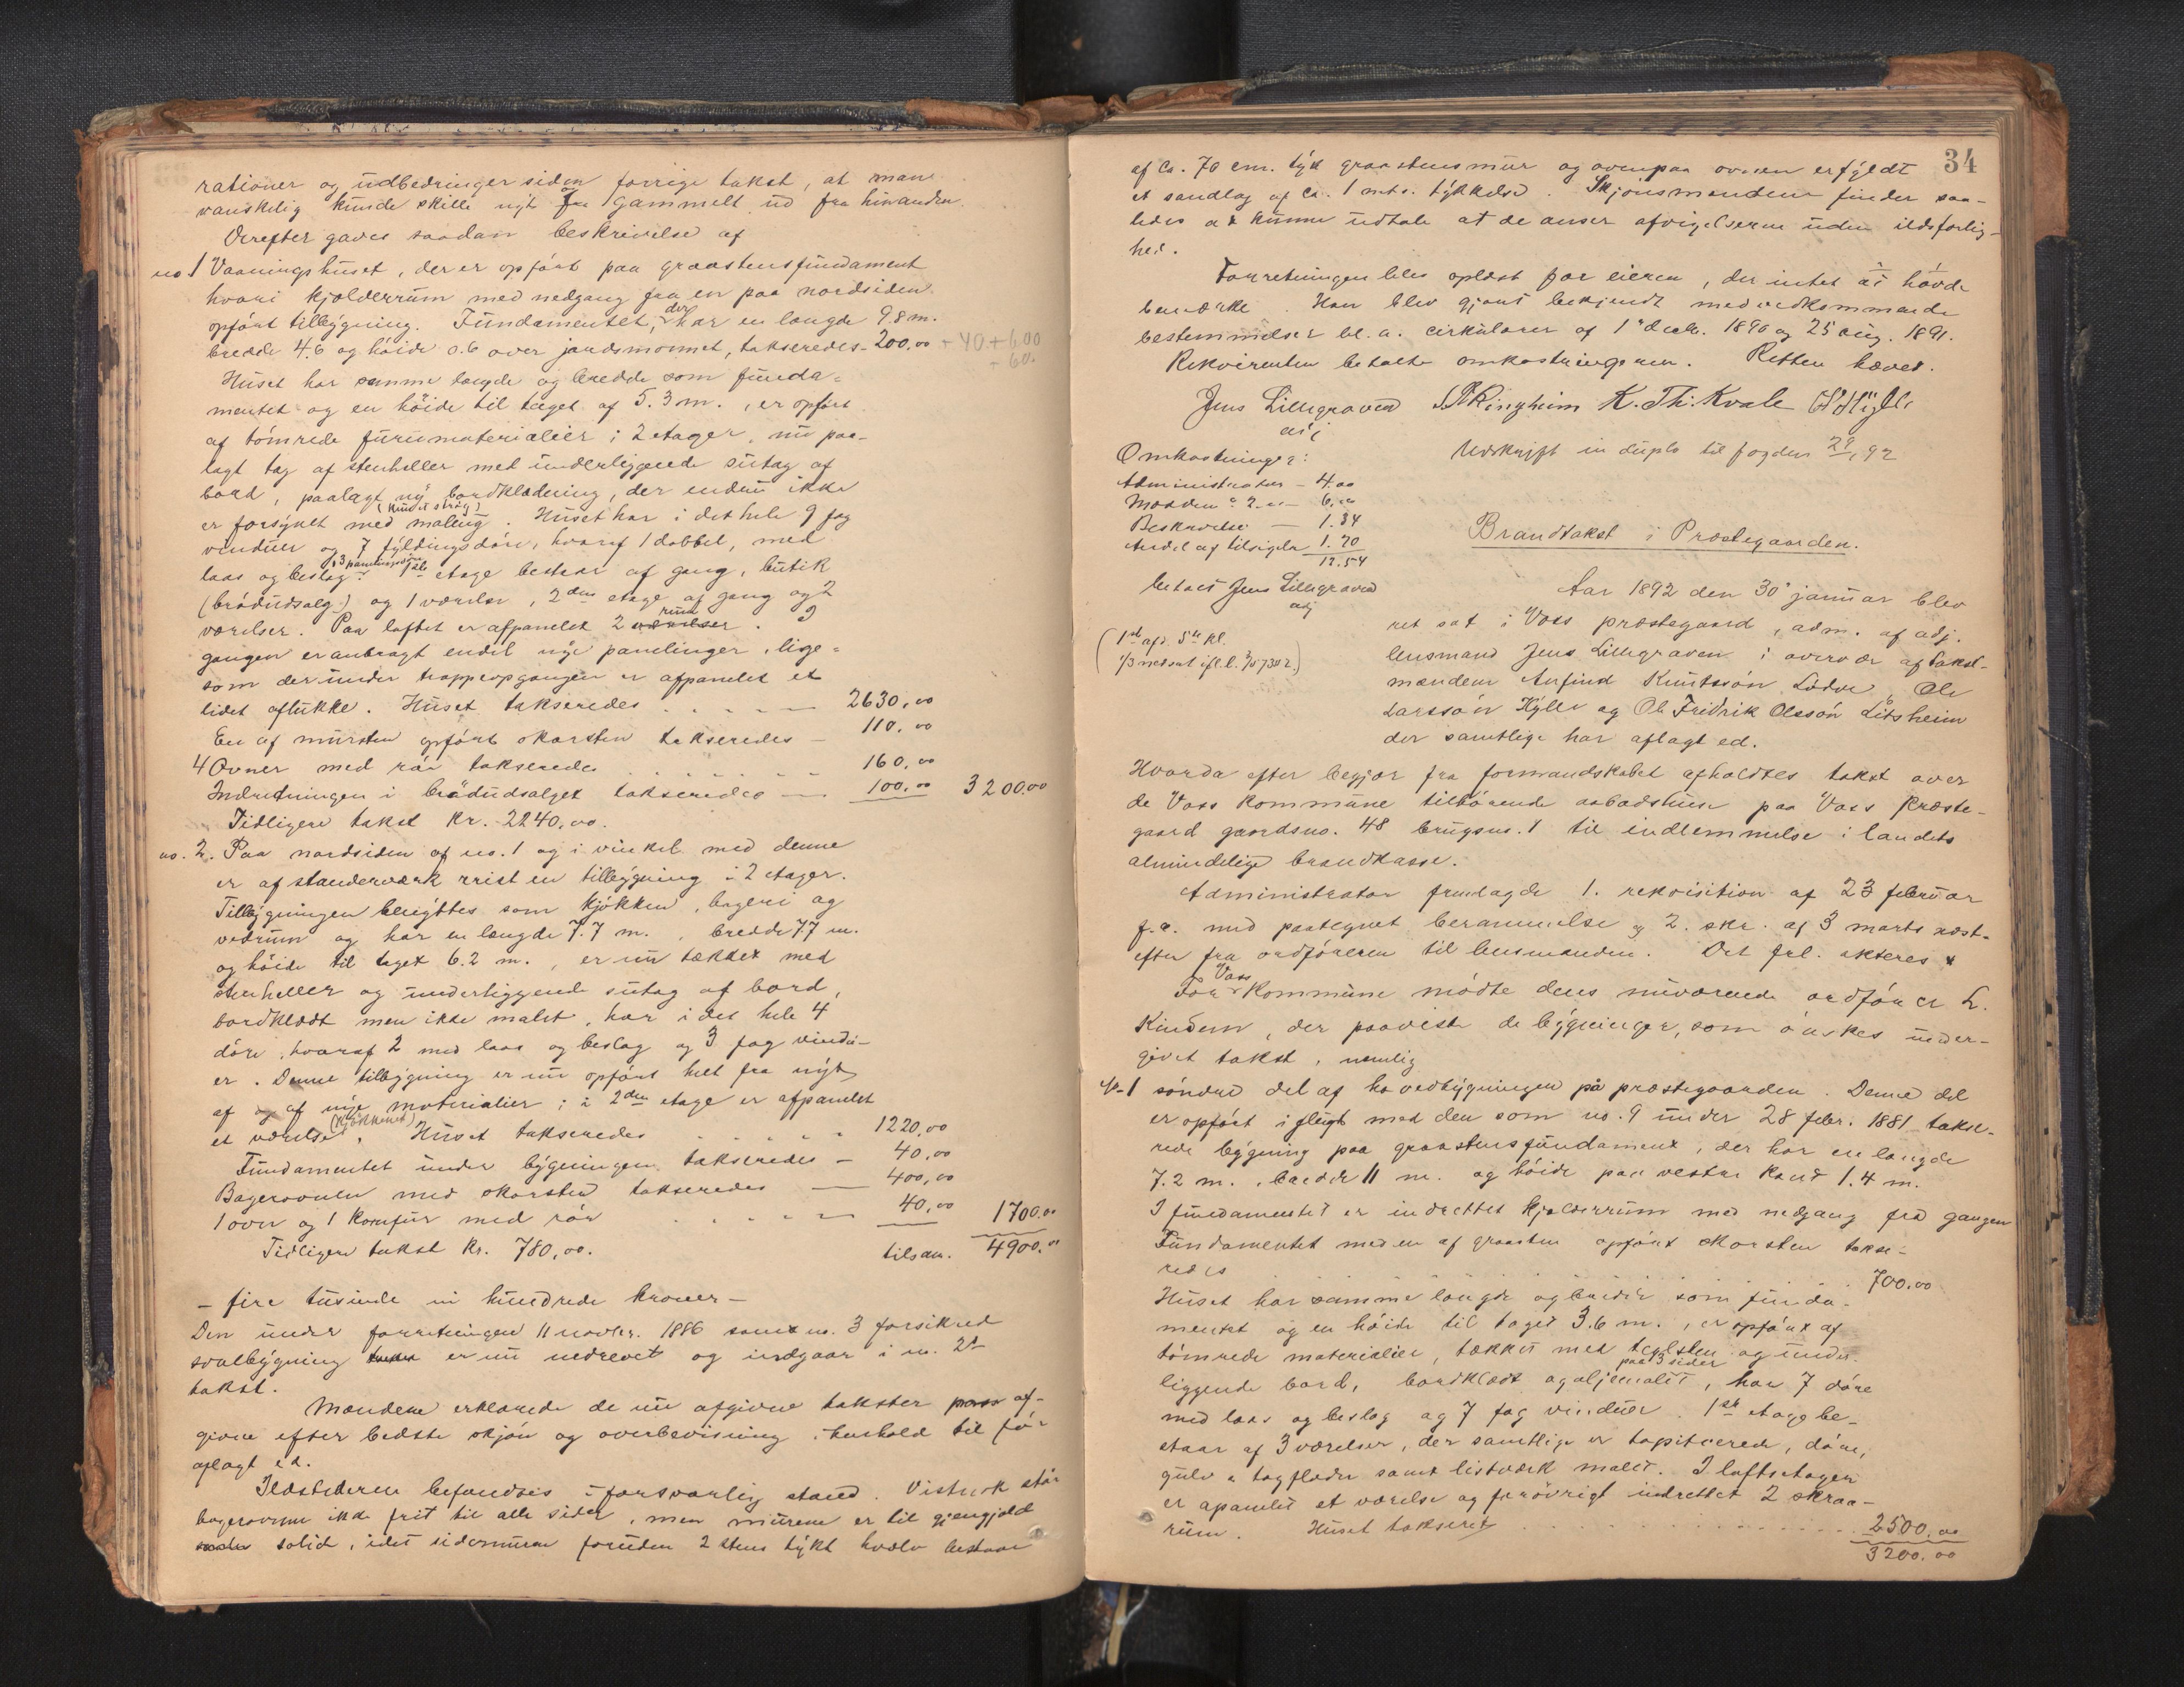 rationer og udbedringer siden forrige takst, at man
vanskelig kunde skille nyt fra gammelt ud fra hinanden.
Derefter gaves saadan beskrivelse af
no 1 Vaaningshuset, der er opført paa graastensfundament
hvori kjelderrum med nedgang fra en paa nordsiden
opført tilbygning. Fundamentet, der har en længde 9.8 m.
bredde 4.6 og høide 0.6 over jordsmonnet, takseredes - 200,00 + 40 + 600
Huset har samme længde og bredde som funda-
mentet og en høide til taget af 5.3 m., er opført
af tømrede furumaterialier i 2 etager, nu paa-
lagt tag af stenheller med underliggende sutag af
bord, paalagt ny bordklædning, der endnu ikke
er forsynet med maling (kun et strøg). Huset har i det hele 9 fag
vinduer og 7 fyldingsdøre, hvoraf 1 dobbel, med
laas og beslag. 1ste etage bestaar af gang, butik
(brødudsalg) og 1 værelse, 2den etage af gang og 2
værelser. Paa loftet er afpanelet 2 værelser rum. I
gangen er anbragt endel nye panelinger, lige-
som der under trappeopgangen er afpanelet et
lidet aflukke. Huset takseredes 2630,00
En af mursten opført skorsten takseredes - 110,00
4 Ovner med rør takseredes 160,00
Indretningen i brødudsalget takseredes - 100,00 3200.00
Tidligere takst kr. 2240,00.
no. 2. Paa nordsiden af no. 1 og i vinkel med denne
er af standerværk reist en tilbygning i 2 etager.
Tilbygningen benyttes som kjøkken, bageri og
vedrum og har en længde 7.7 m., bredde 7.7 m.
og høide til taget 6.2 m., er nu tækket med
stenheller og underliggende sutag af bord,
bordklædt men ikke malet, har i det hele 4
døre, hvoraf 2 med laas og beslag og 3 fag vindu-
er. Denne tilbygning er nu opført helt fra nyt
af og af nye materialier; i 2den etage er afpanelet
et værelse (kjøkkenet). Huset takseredes 1220,00
Fundamentet under bygningen takseredes - 40,00
Bagerovnen med skorsten takseredes - 400,00
1 ovn og 1 komfur med rør 40,00 1700.00
Tidligere takst kr. 780,00. tilsam. 4900.00
- fire tusinde ni hundrede kroner -
Den under forretningen 11 novbr. 1886 som no. 3 forsikred
svalbygning er nu nedrevet og indgaar i no. 2s
takst.
Mændene erklærede de nu afgivne takster af-
givne efter bedste skjøn og overbevisning i henhold til før
aflagt ed.
Ildstederne befandtes i forsvarlig stand. Vistnok står
bagerovnen ikke frit til alle sider, men murene er til gjengjeld
solide, idet sidemuren foruden 2 stens tykt hvælv bestaar
34
af ca. 70 cm. tyk graastensmur og ovenpaa ovnen er fyldt
et sandlag af ca. 1 mtrs. tykkelse. Skjønsmændene finder saa-
ledes at kunne udtale at de anser afvigelserne uden ildsfarlig-
hed.
Forretningen blev oplæst for eieren, der intet at havde
bemærke. Han blev gjort bekjendt med vedkommende
bestemmelser bl. a. cirkulærer af 1' decbr. 1890 og 25 aug. 1891.
Rekvirenten betalte omkostningerne. Retten hævet.
Jens Lillegraven N Ringheim K. Th. Kvale
adj
Omkostninger: Udskrift in duplo til fogden 2/9, 92
Administrator - 4.00
Mændene à 2.00 - 6,00
Beskrivelse - 1.34
Andel af tilsigelse 1.20
12.54
betalt Jens Lillegraven
adj
Brandtakst i Præstegaarden.
(1ste afd. 5te kl.
Aar 1892 den 30' januar blev
ret sat i Voss præstegaard, adm. af adj.
lensmand Jens Lillegraven i overvær af takst-
mændene Anfind Knutssøn Lødve, Ole
Larssøn Hylle og Ole Fridrik Olssøn Litsheim
der samtlige har aflagt ed.
Hvorda efter begjær fra formandskabet afholdtes takst over
de Voss kommune tilhørende aabodshuse paa Voss Præste-
gaard gaardsno. 48 brugsno. 1 til indlemmelse i landets
almindelige brandkasse.
Administrator fremlagde 1. rekvisition af 23 februar
f.a. med paategnet berammelse og 2. skr. af 3 marts næst-
efter fra ordføreren til lensmanden. Det frl. akteres
For Voss kommune mødte dens nuværende ordfører L.
Kindem, der paaviste de bygninger, som ønskes under-
givet takst, nemlig
No-1 søndre del af hovedbygningen på præstegaarden. Denne del
er opført i fleigt med den som no. 9 under 28 febr. 1881 takse-
rede bygning paa graastensfundament, der har en længde
7.2 m., bredde 11 m. og høide paa vestre kant 1.4 m.
I fundamentet er indrettet kjelderrum med nedgang fra gangen
Fundamentet med en af graasten opført skorsten takse-
redes 700.00
Huset har samme længde og bredde som funda-
mentet og en høide til taget 3.6 m., er opført af
tømrede materialier, tækket med teglsten og under-
liggende bord, bordklædt og oljemalet paa 3 sider, har 7 døre
med laas og beslag og 7 fag vinduer. 1ste etage be-
staar af 3 værelser, der samtlige er tapitserede, døre,
gulv & tagflader samt listværk malet. I loftsetagen
er apanelet et værelse og forøvrigt indrettet 2 skraa-
rum. Huset takseret 2500,00
3200.00